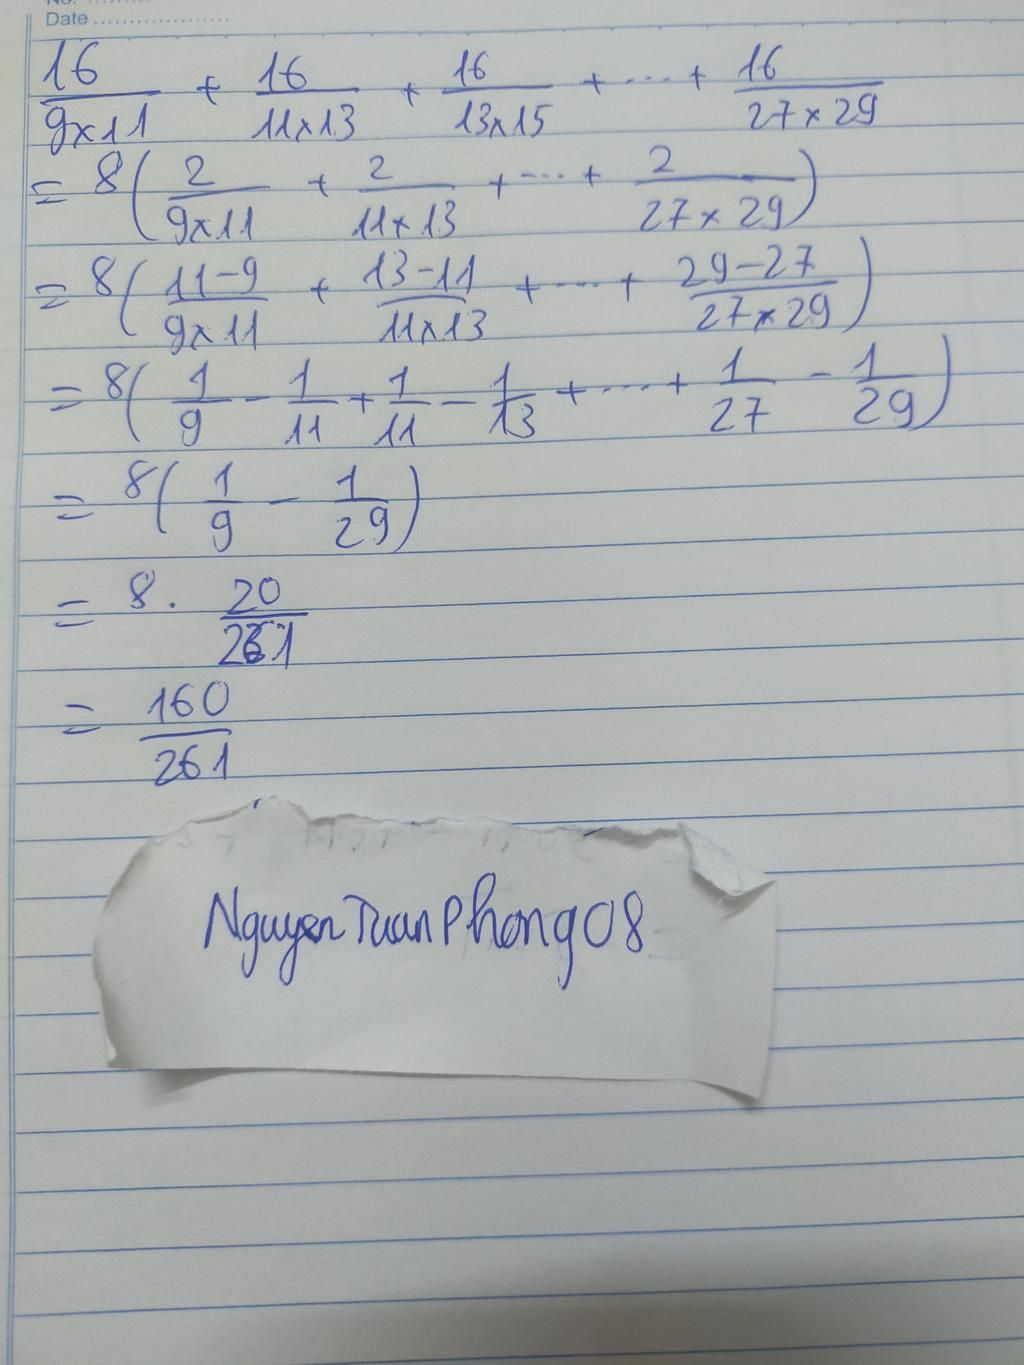 No. ..........
Date ......................
16/(9×11) + 16/(11×13) + 16/(13×15) + ... + 16/(27×29)
= 8(2/(9×11) + 2/(11×13) + ... + 2/(27×29))
= 8((11-9)/(9×11) + (13-11)/(11×13) + ... + (29-27)/(27×29))
= 8(1/9 - 1/11 + 1/11 - 1/13 + ... + 1/27 - 1/29)
= 8(1/9 - 1/29)
= 8. 20/261
= 160/261
NguyenTuanPhong08